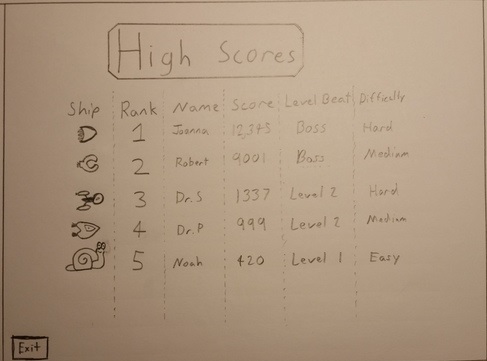 High Scores
Ship Rank Name Score Level Beat Difficulty
1 Joanna 12,345 Boss Hard
2 Robert 9001 Boss Medium
3 Dr. S 1337 Level 2 Hard
4 Dr. P 999 Level 2 Medium
5 Noah 420 Level 1 Easy
Exit